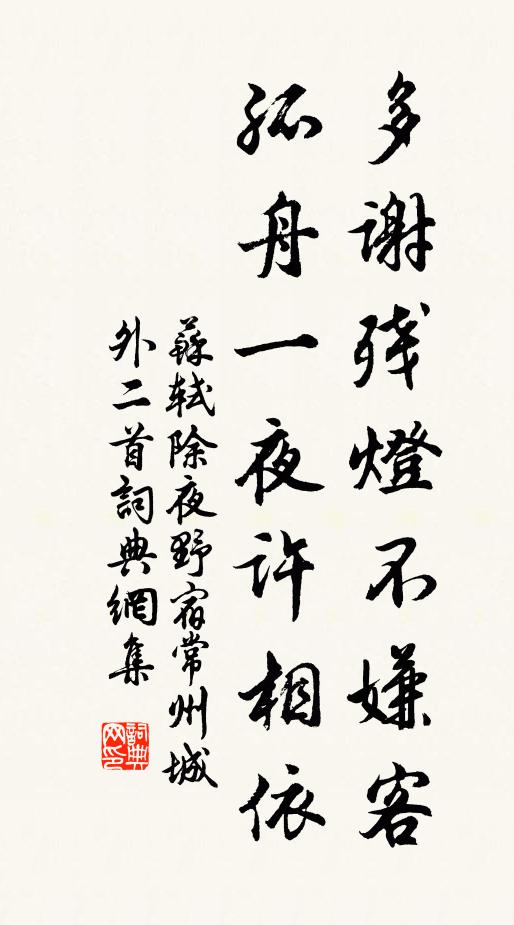 多谢残燈不嫌客
孤舟一夜许相依
蘇軾除夜野宿常州城
外二首詞典網集
詞典
网印